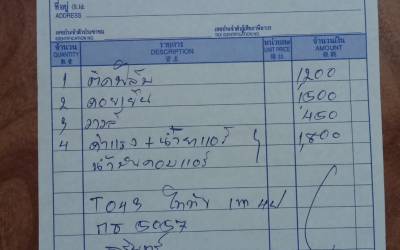 ที่อยู่
ADDRESS
เลขประจำตัวประชาชน เลขประจำตัวผู้เสียภาษีอากร
IDENTIFICATION NO. TAX IDENTIFICATION NO.
จำนวน รายการ หน่วยละ จำนวนเงิน
QUANTITY DESCRIPTION UNIT PRICE AMOUNT
1 ติดฟิล์ม 1,200
2 คอยเย็น 1,500
3 วาล์ 450
4 ค่าแรง + น้ำยาแอร์ 1,800
น้ำมันคอมแอร์
5057